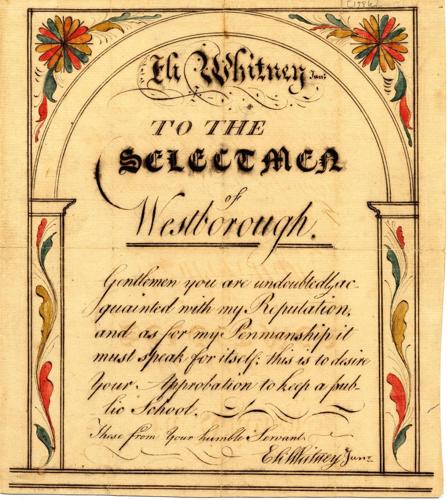 Eli Whitney Junr
TO THE
SELECTMEN
of
Westborough.
Gentlemen you are undoubtedly ac-
quainted with my Reputation,
and as for my Penmanship it
must speak for itself; this is to desire
Your Approbation to keep a pub-
lic School.
These from Your humble Servant
Eli Whitney Junr